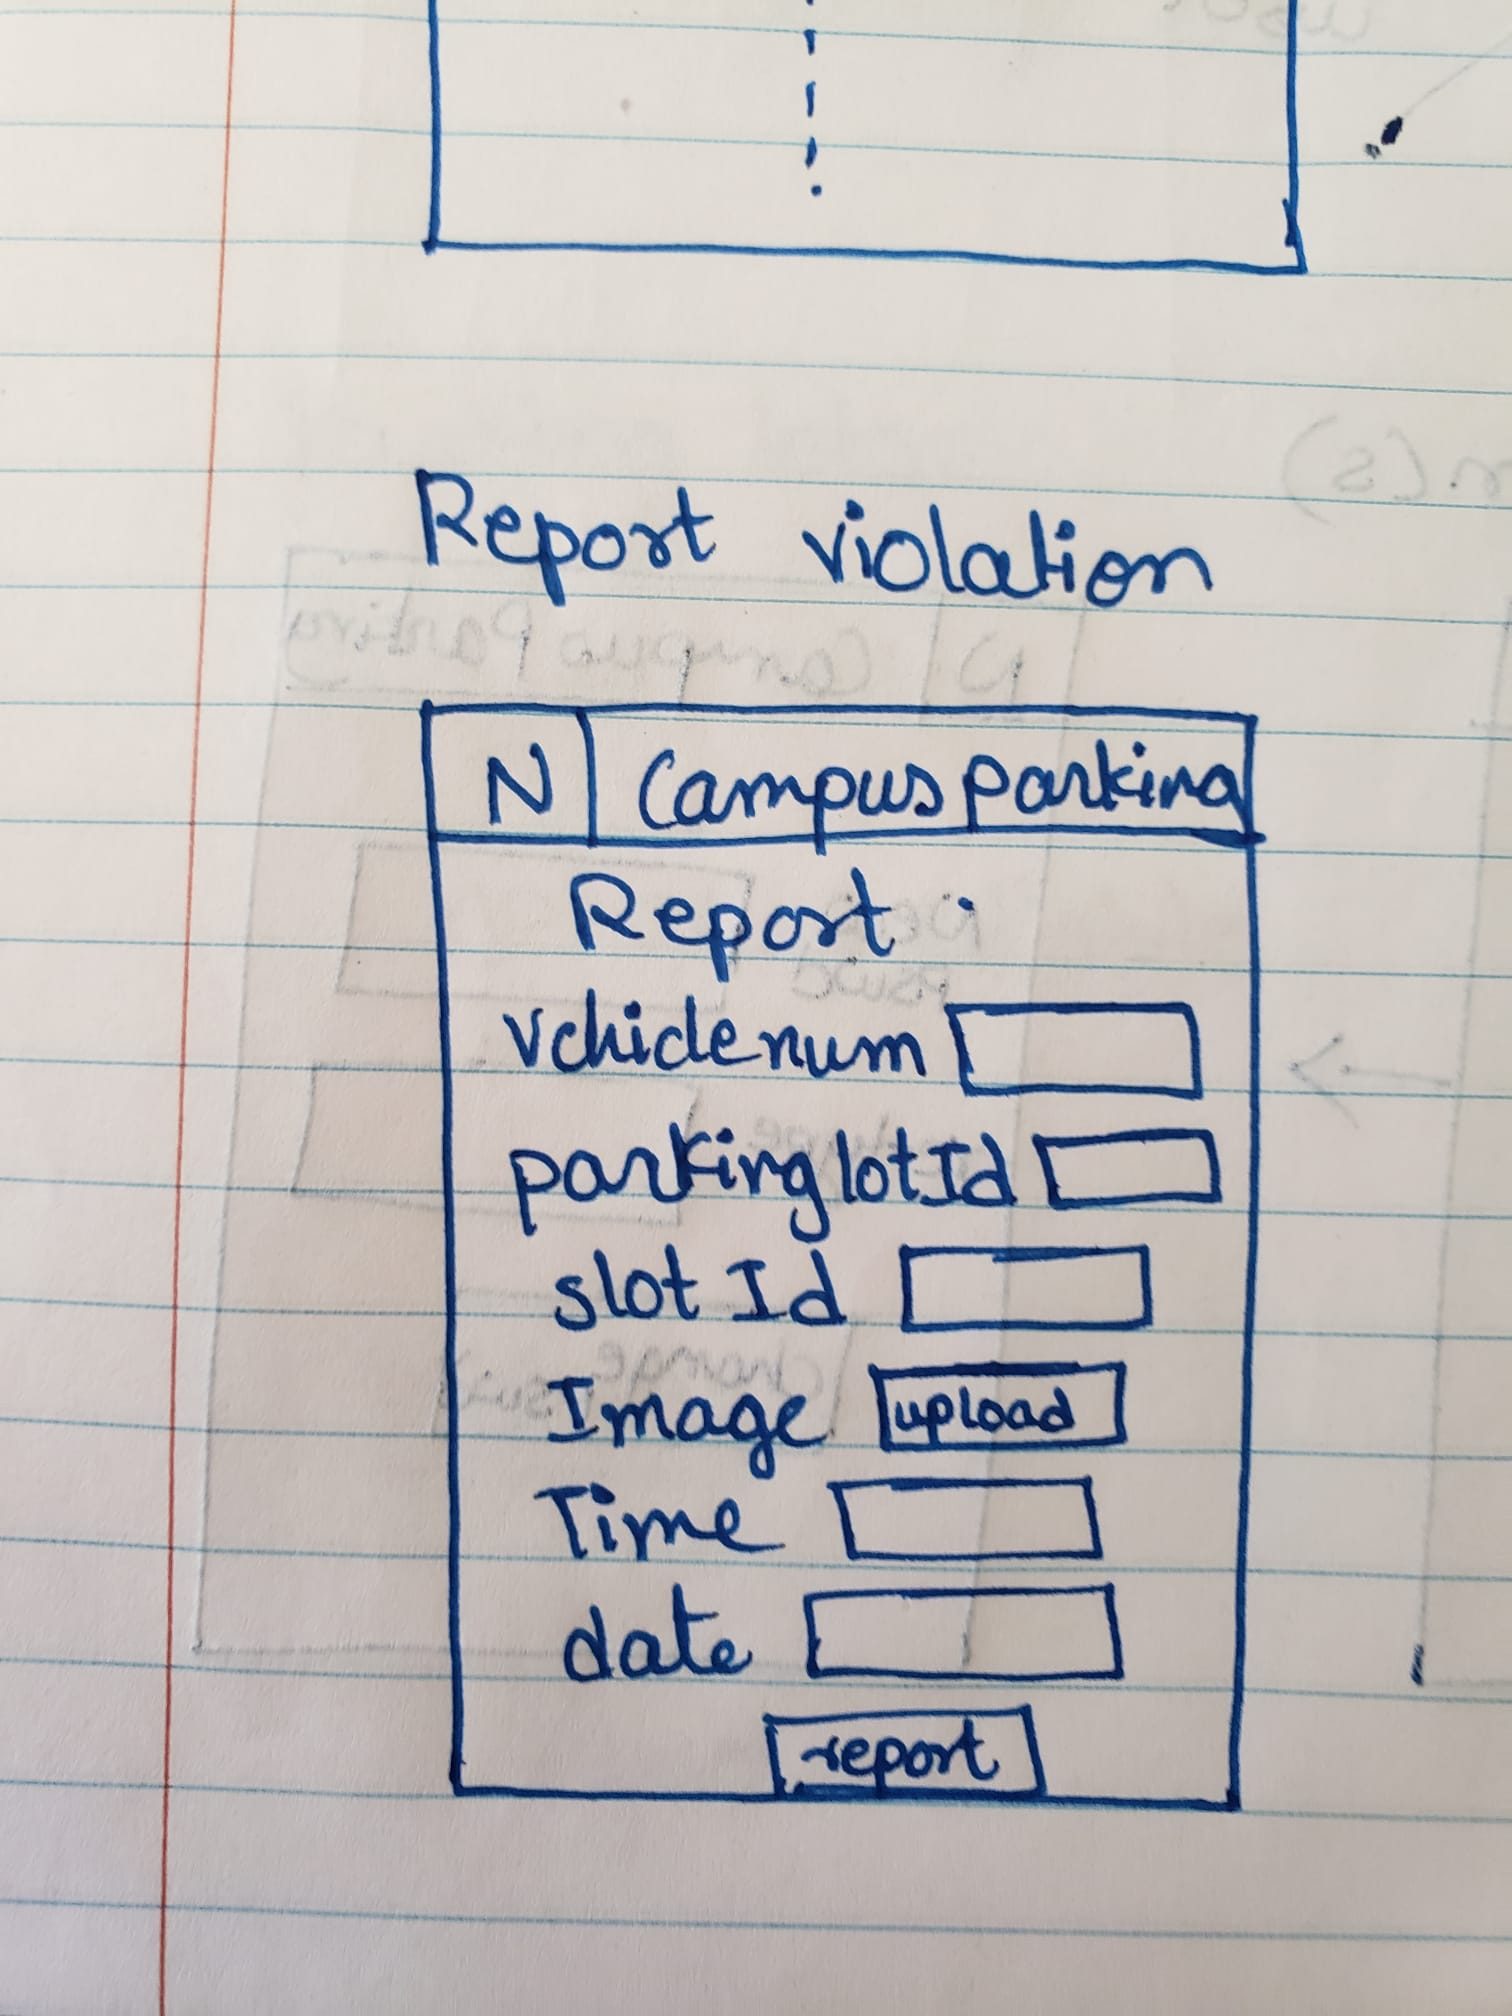 Report violation
N Campus parking
Report
vehicle num
parking lot Id
slot Id
Image upload
Time
date
report